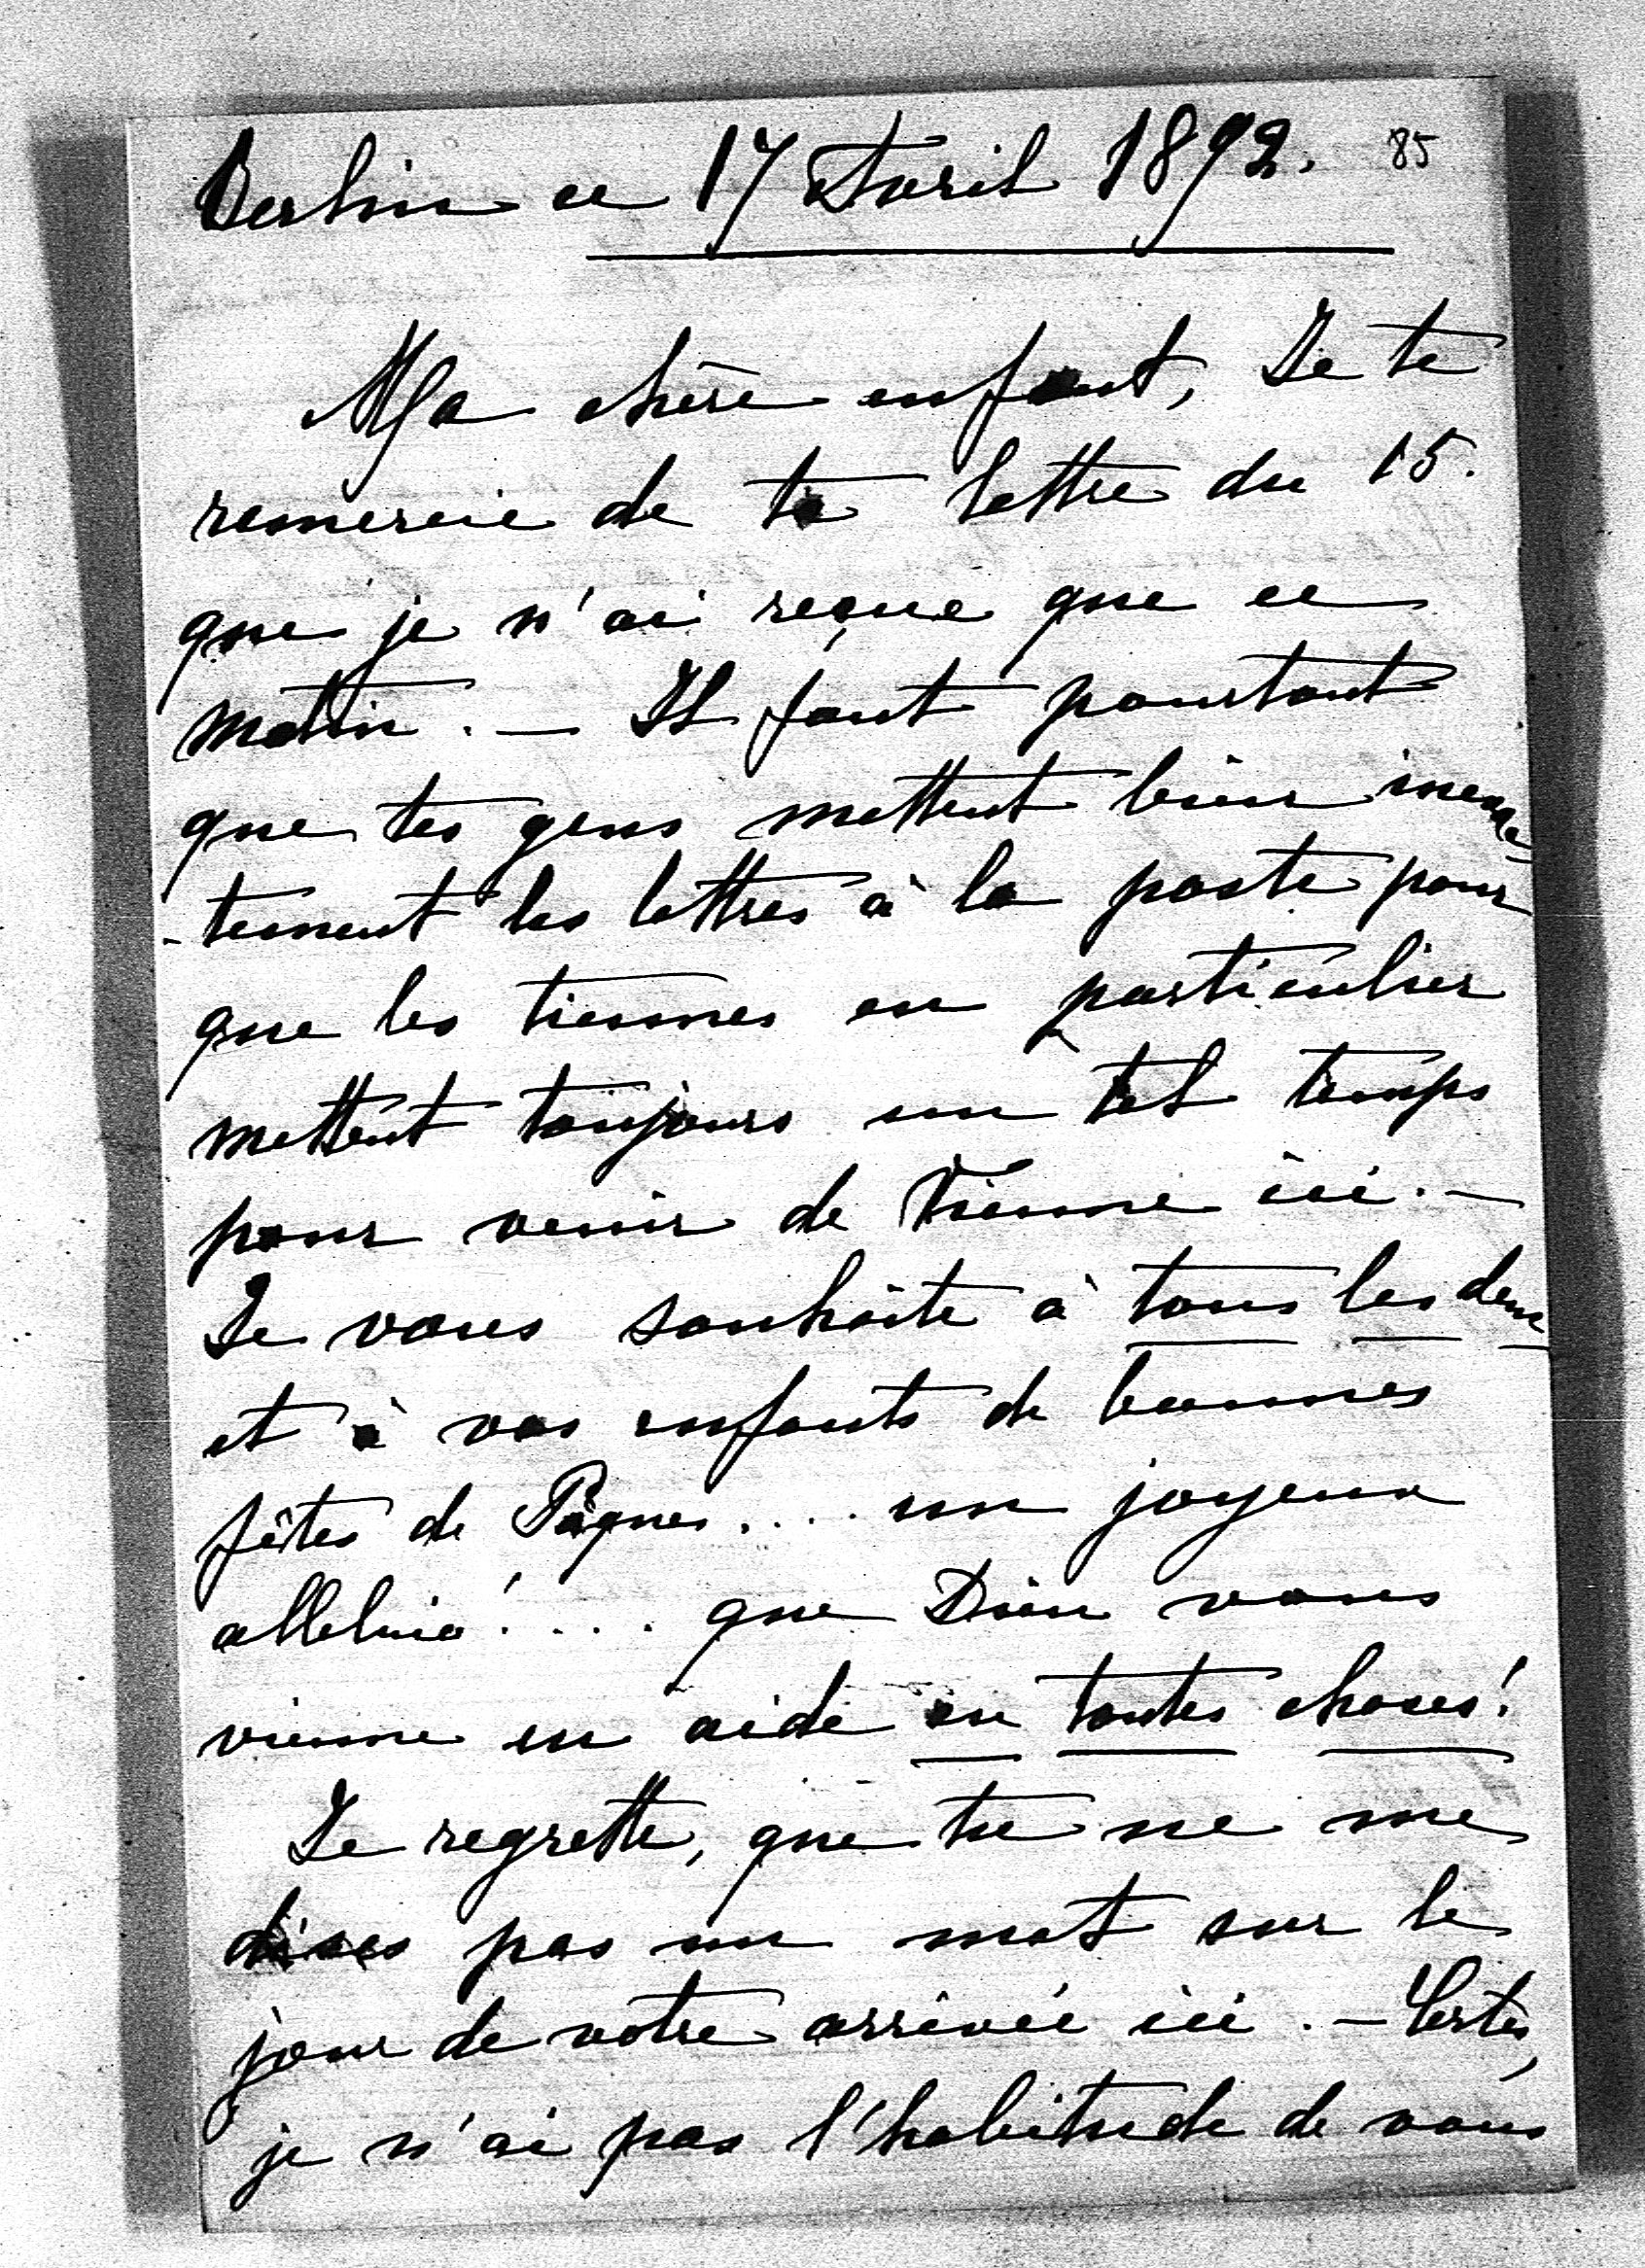 Berlin ce 17 Avril 1892. 85
Ma chère enfant, Je te
remercie de ta lettre du 15.
que je n'ai reçue que ce
matin. — Il faut pourtant
que tes gens mettent bien inexac-
-tement les lettres à la poste pour
que les tiennes en particulier
mettent toujours un tel temps
pour venir de Vienne ici. —
Je vous souhaite à tous les deux
et à vos enfants de bonnes
fêtes de Pâques.... un joyeux
alleluia!.... que Dieu vous
vienne en aide en toutes choses!
Je regrette, que tu ne me
dises pas un mot sur le
jour de votre arrivée ici. — Certes,
je n'ai pas l'habitude de vous